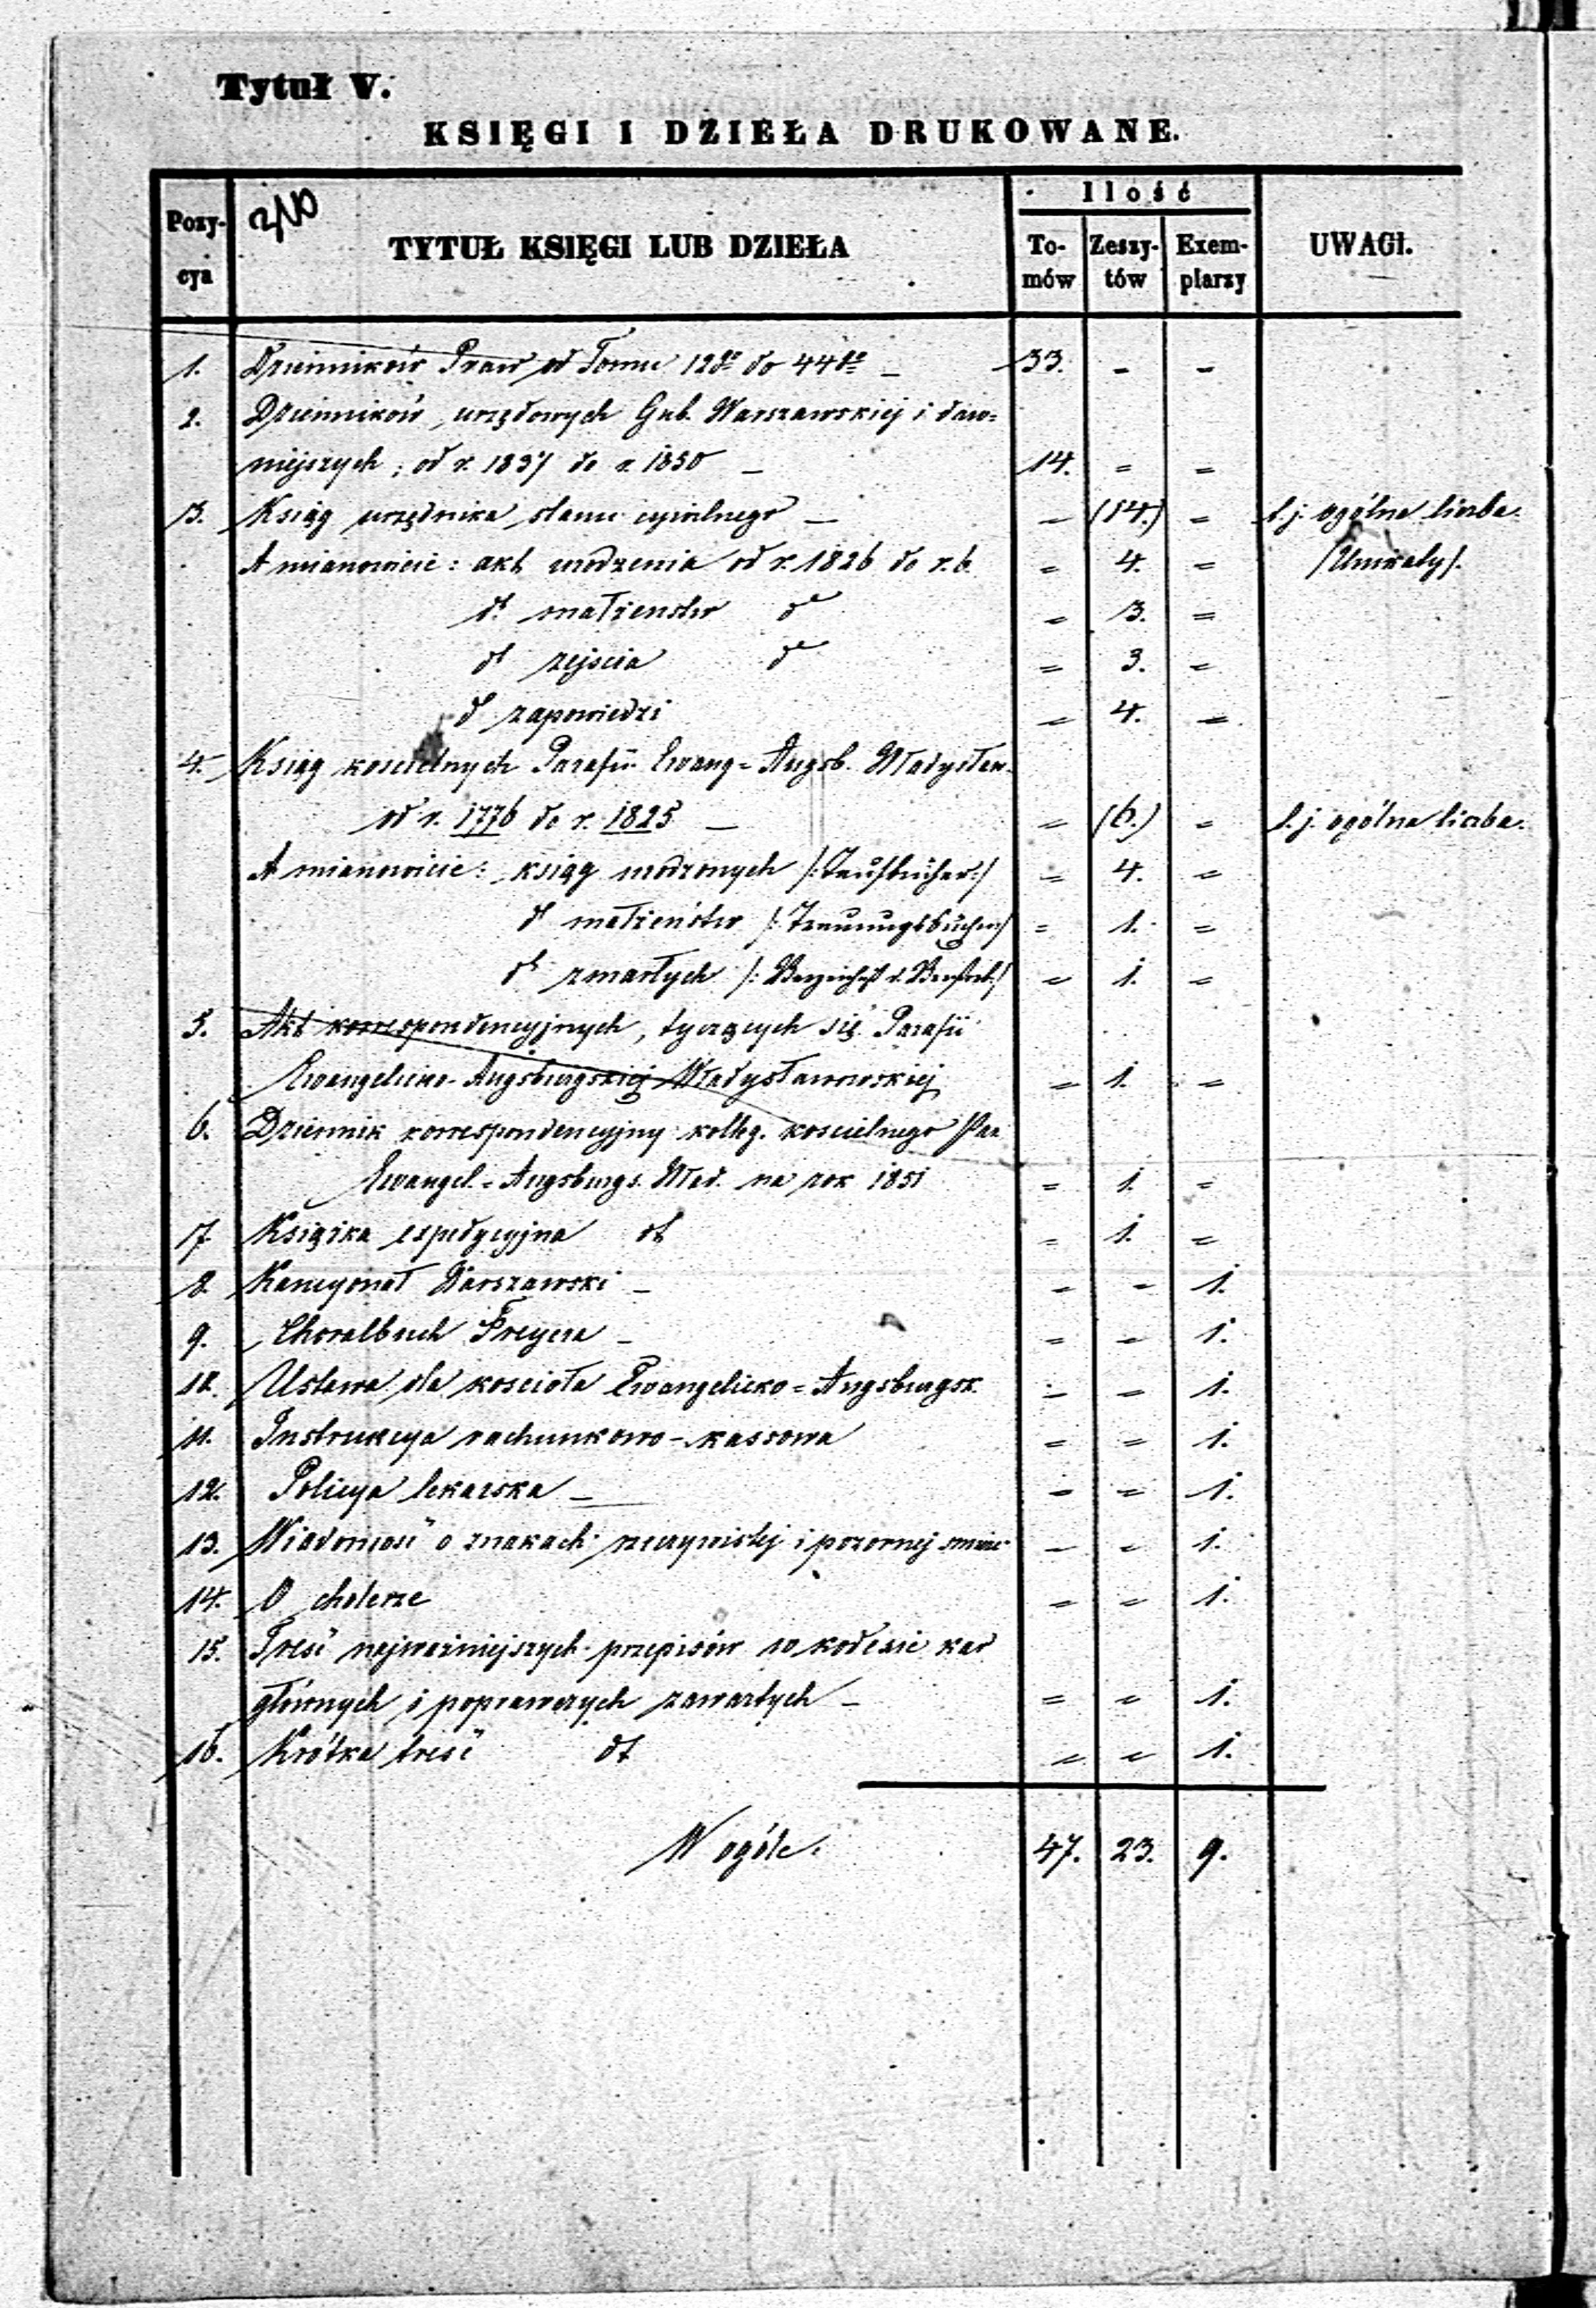 Tytuł V.
KSIĘGI I DZIEŁA DRUKOWANE.
Pozy-cya TYTUŁ KSIĘGI LUB DZIEŁA Ilość To-mów Zeszy-tów Exem-plarzy UWAGI.
1. Dzienników Praw od Tomu 12go do 44go – 33. - -
2. Dzienników urzędowych Gub. Warszawskiej i daw=
niejszych, od r. 1837 do r. 1850 – 14. = =
3. Ksiąg urzędnika stanu cywilnego – = (14.) = t.j. ogólna liczba.
A mianowicie: akt urodzenia od r. 1826 do r. b. = 4. = /Unikaty/.
dt małżenstw do = 3. =
dt zejscia do = 3. =
dt zapowiedzi = 4. =
4. Ksiąg koscielnych Parafii Ewang=Augsb. Władysław.
od r. 1776 do r. 1825 – = (6.) = t.j. ogólna liczba.
A mianowicie: ksiąg urodzonych /:Taufbücher:/ = 4. =
dt małżeństw /:Trauungsbücher/ = 1. =
dt zmarłych = 1. =
5. Akt korrespondencyjnych, tyczących się Parafii
Ewangelicko-Augsburgskiej Władysławowskiej = 1. =
6. Dziennik korrespondencyjny kolleg. koscielnego Par
Ewangel.=Augsburgs. Wład. na rok 1851 = 1. =
7 Książka expedycyjna dt = 1. =
8. Kancyonał Warszawski – = = 1.
9. Choralbuch Freyera – = = 1.
10. Ustawa dla koscioła Ewangelicko=Augsburgsk. = = 1.
11. Instrukcya rachunkowo-kassowa = = 1.
12. Policya lekarska – = = 1.
13. Wiadomość o znakach rzeczywistej i pozornej smierc = = 1.
14. O cholerze = = 1.
15. Treść najważniejszych przepisów w kodexie kar
głównych i poprawczych zawartych – = = 1.
16. Krótka treść dt = = 1.
W ogóle. 47. 23. 9.